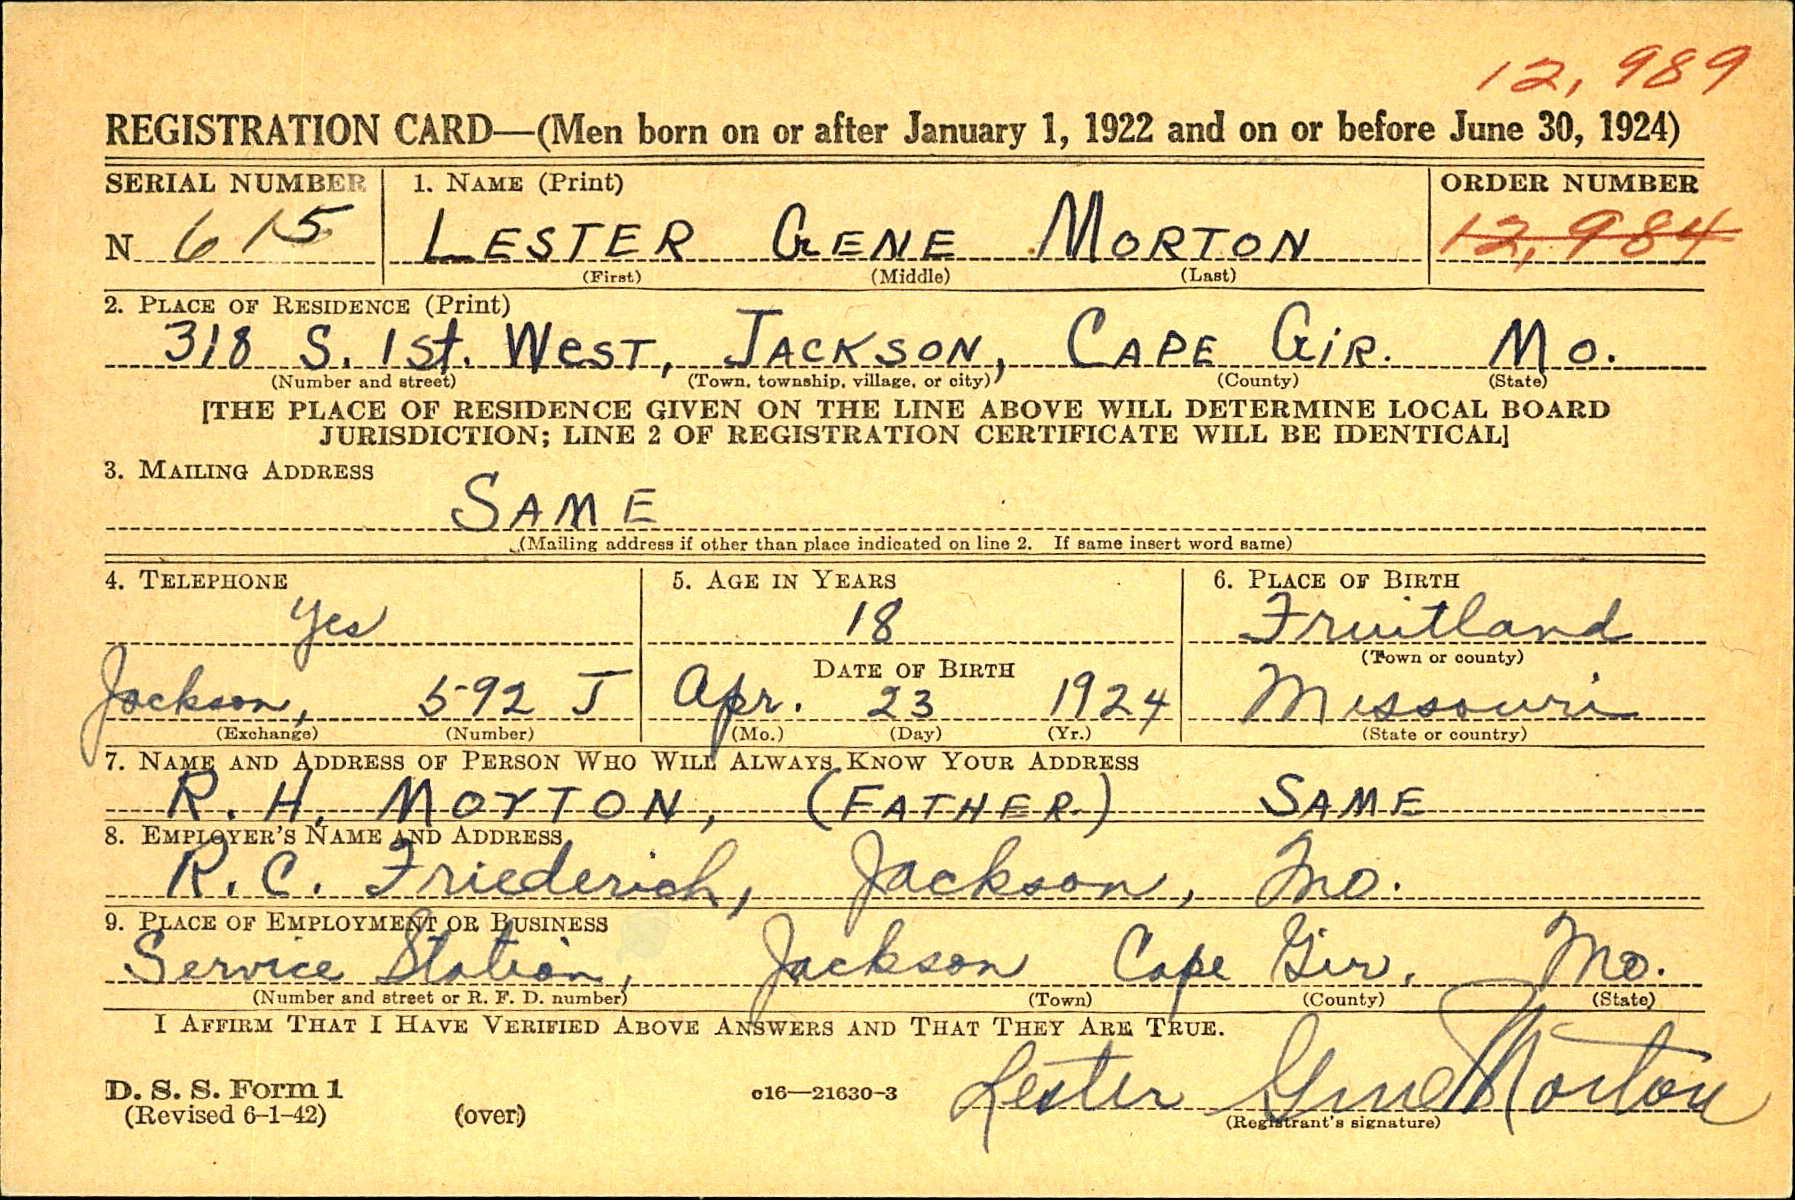 12,989
REGISTRATION CARD—(Men born on or after January 1, 1922 and on or before June 30, 1924)
SERIAL NUMBER 1. NAME (Print) ORDER NUMBER
N 615 LESTER GENE MORTON 12,984
(First) (Middle) (Last)
2. PLACE OF RESIDENCE (Print)
318 S. 1st. WesT, JACKSON, CAPE GiR. Mo.
(Number and street) (Town, township, village, or city) (County) (State)
[THE PLACE OF RESIDENCE GIVEN ON THE LINE ABOVE WILL DETERMINE LOCAL BOARD
JURISDICTION; LINE 2 OF REGISTRATION CERTIFICATE WILL BE IDENTICAL]
3. MAILING ADDRESS
SAME
(Mailing address if other than place indicated on line 2. If same insert word same)
4. TELEPHONE 5. AGE IN YEARS 6. PLACE OF BIRTH
Yes 18 Fruitland
(Town or county)
DATE OF BIRTH
Jackson, 592 J Apr. 23 1924 Missouri
(Exchange) (Number) (Mo.) (Day) (Yr.) (State or country)
7. NAME AND ADDRESS OF PERSON WHO WILL ALWAYS KNOW YOUR ADDRESS
R. H. MorTON, (FATHER) SAME
8. EMPLOYER'S NAME AND ADDRESS
R. C. Friederich, Jackson, Mo.
9. PLACE OF EMPLOYMENT OR BUSINESS
Service Station, Jackson Cape Gir. Mo.
(Number and street or R. F. D. number) (Town) (County) (State)
I AFFIRM THAT I HAVE VERIFIED ABOVE ANSWERS AND THAT THEY ARE TRUE.
Lester Gene Morton
D. S. S. Form 1 c16—21630-3
(Revised 6-1-42) (over) (Registrant's signature)